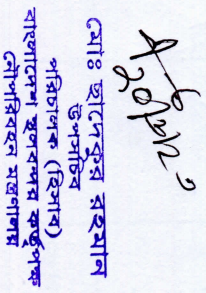 মোঃ ছাদেকুর রহমান
উপসচিব
পরিচালক (হিসাব)
বাংলাদেশ স্থলবন্দর কর্তৃপক্ষ
নৌপরিবহন মন্ত্রণালয়